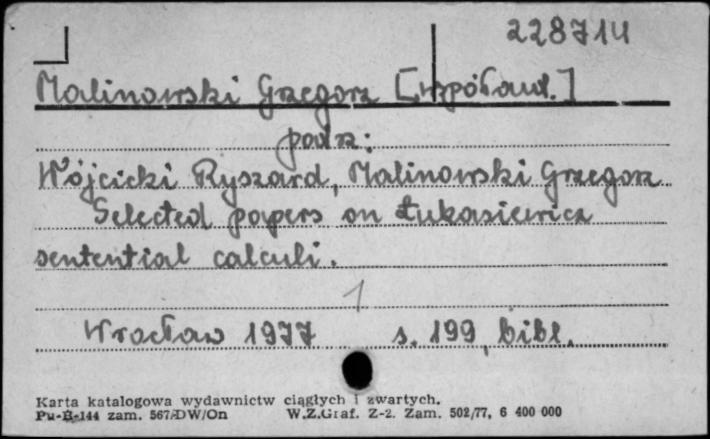 228714
Malinowski Grzegorz [współaut.]
podz:
Wójcicki Ryszard, Malinowski Grzegorz
Selected papers on Łukasiewicz
sentential calculi.
1
Wrocław 1977 s. 199, bibl.
Karta katalogowa wydawnictw ciągłych i zwartych.
Pu-B-144 zam. 567/DW/On W.Z.Graf. Z-2. Zam. 502/77, 6 400 000